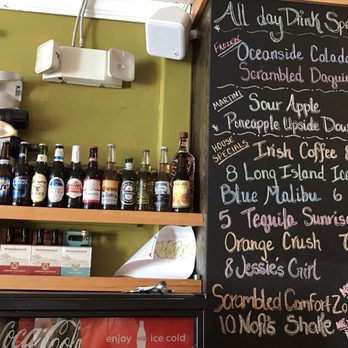 All day Drink Spe
FROZEN
Oceanside Colada
Scrambled Daquir
MARTINI
Sour Apple
Pineapple Upside Dow
HOUSE SPECIALS
Irish Coffee 8
8 Long Island Ice
Blue Malibu 6
5 Tequila Sunrise
Orange Crush 7
8 Jessie's Girl
Scrambled Comfort Zo
10 Nofi's Shake
Coca-Cola
enjoy ice cold